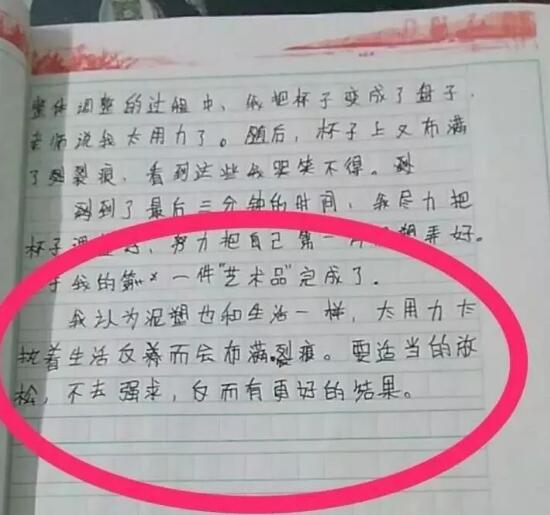 整体调整的过程中,我把杯子变成了盘子,
老师说我太用力了。随后,杯子上又布满
了裂痕,看到这些我哭笑不得。到
到了最后三分钟的时间,我尽力把
杯子调整好,努力把自己第一件泥塑弄好。
于我的第一件"艺术品"完成了。
我认为泥塑也和生活一样,太用力太
执着生活反着而会布满裂痕。要适当的放
松,不去强求,反而有更好的结果。